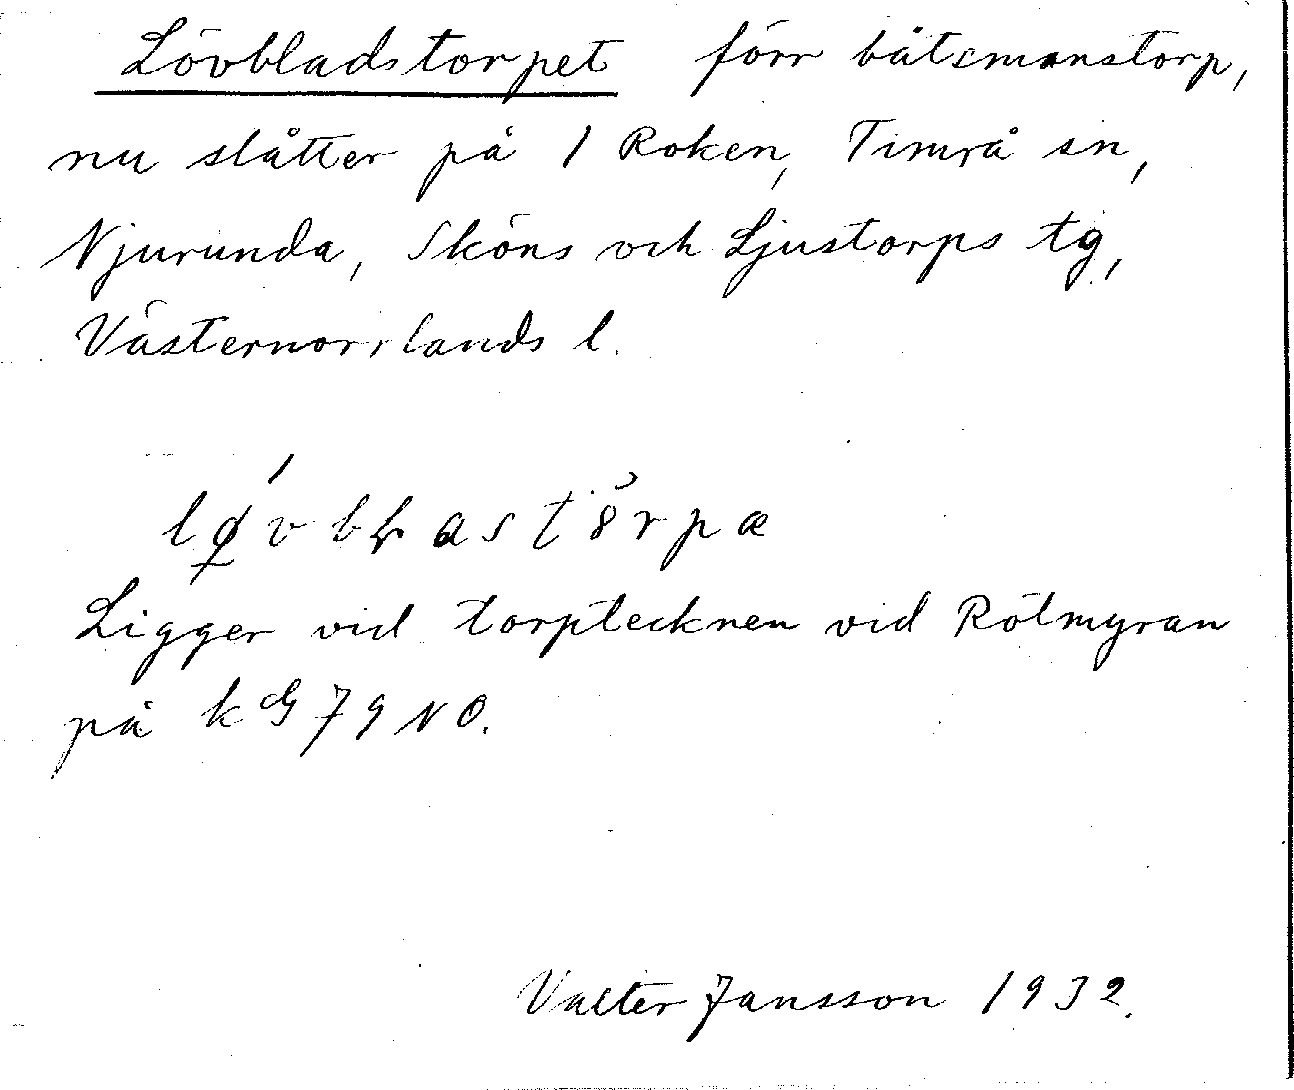 Lövbladstorpet förr båtsmanstorp,
nu slåtter på 1 Roken, Timrå sn,
Njurunda, Sköns och Ljustorps tg,
Västernorrlands l.
Ligger vid torptecknen vid Rötmyran
på k G 79 NO.
Valter Jansson 1932.